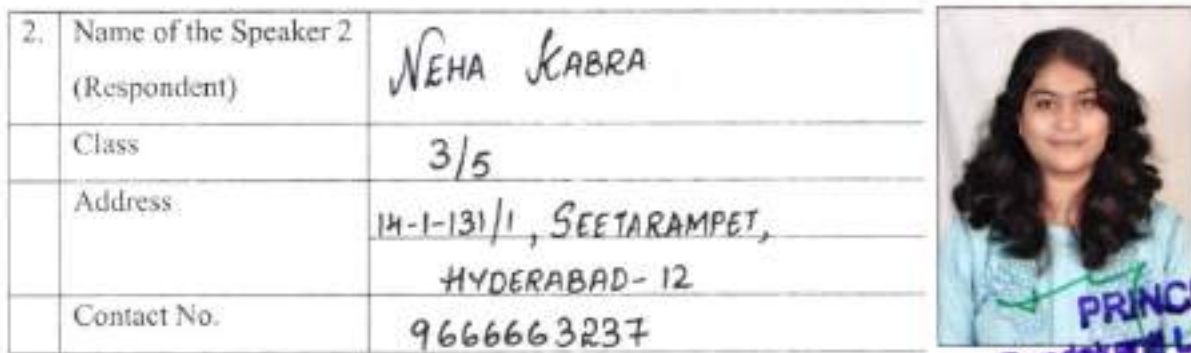 2. Name of the Speaker 2
(Respondent)
NEHA KABRA
Class
3/5
Address
14-1-131/1, SEETARAMPET,
HYDERABAD- 12
Contact No.
9666663237
PRINC